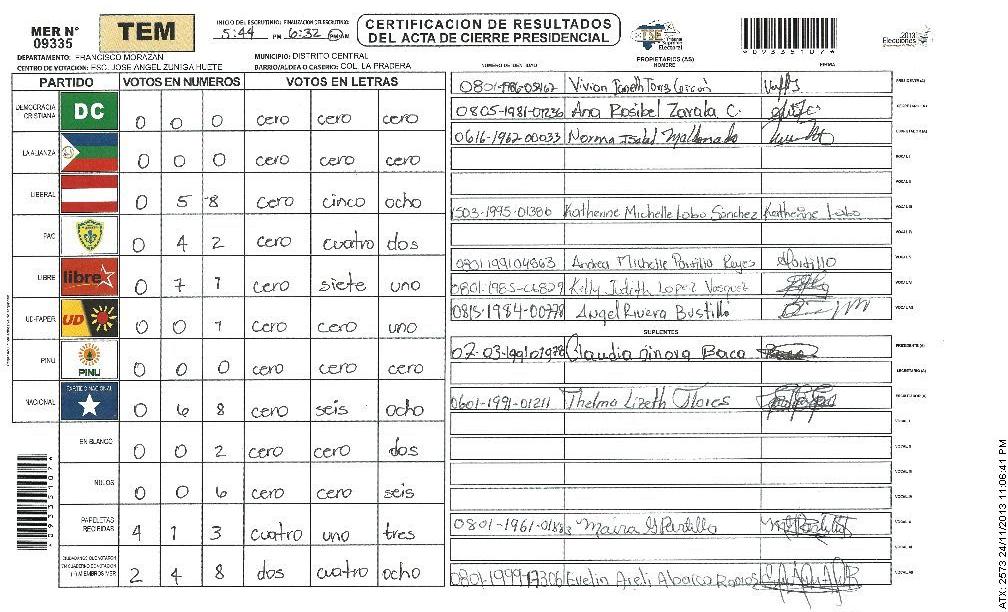 MER N° 09335
TEM
INICIO DEL ESCRUTINIO: FINALIZACION DEL ESCRUTINIO:
5:44 PM 6:32 PM
CERTIFICACION DE RESULTADOS
DEL ACTA DE CIERRE PRESIDENCIAL
TSE Tribunal Supremo Electoral
2013 Elecciones
DEPARTAMENTO: FRANCISCO MORAZAN
MUNICIPIO: DISTRITO CENTRAL
CENTRO DE VOTACION: ESC. JOSE ANGEL ZUNIGA HUETE
BARRIO/ALDEA O CASERIO: COL. LA PRADERA
PROPIETARIOS (AS)
NUMERO DE IDENTIDAD NOMBRE FIRMA
PARTIDO VOTOS EN NUMEROS VOTOS EN LETRAS
DEMOCRACIA CRISTIANA DC 0 0 0 cero cero cero
LA ALIANZA 0 0 0 cero cero cero
LIBERAL 0 5 8 cero cinco ocho
PAC 0 4 2 cero cuatro dos
LIBRE libre 0 7 1 cero siete uno
UD-FAPER UD 0 0 1 cero cero uno
PINU PINU 0 0 0 cero cero cero
NACIONAL PARTIDO NACIONAL 0 6 8 cero seis ocho
EN BLANCO 0 0 2 cero cero dos
NULOS 0 0 6 cero cero seis
PAPELETAS RECIBIDAS 4 1 3 cuatro uno tres
CIUDADANOS QUE VOTARON EN CUADERNO DE VOTACION (+) MIEMBROS MER 2 4 8 dos cuatro ocho
0805-1981-01236 Ana Rosibel Zavala C.
0616-1962-00033 Norma Isabel Maldonado
1503-1995-01386 Katherine Michelle Lobo Sánchez Katherine Lobo
0801199104863 Andrea Michelle Portillo Reyes
Kelly Judith Lopez Vasquez
0815-1984-00778 Angel Rivera Bustillo
SUPLENTES
Claudia Ginova Baca
0601-1991-01211 Thelma Lizeth Flores
0801-1961-01883 Maira
Evelin Areli Ramos
*09335107*
ATX: 2573 24/11/2013 11:06:41 PM